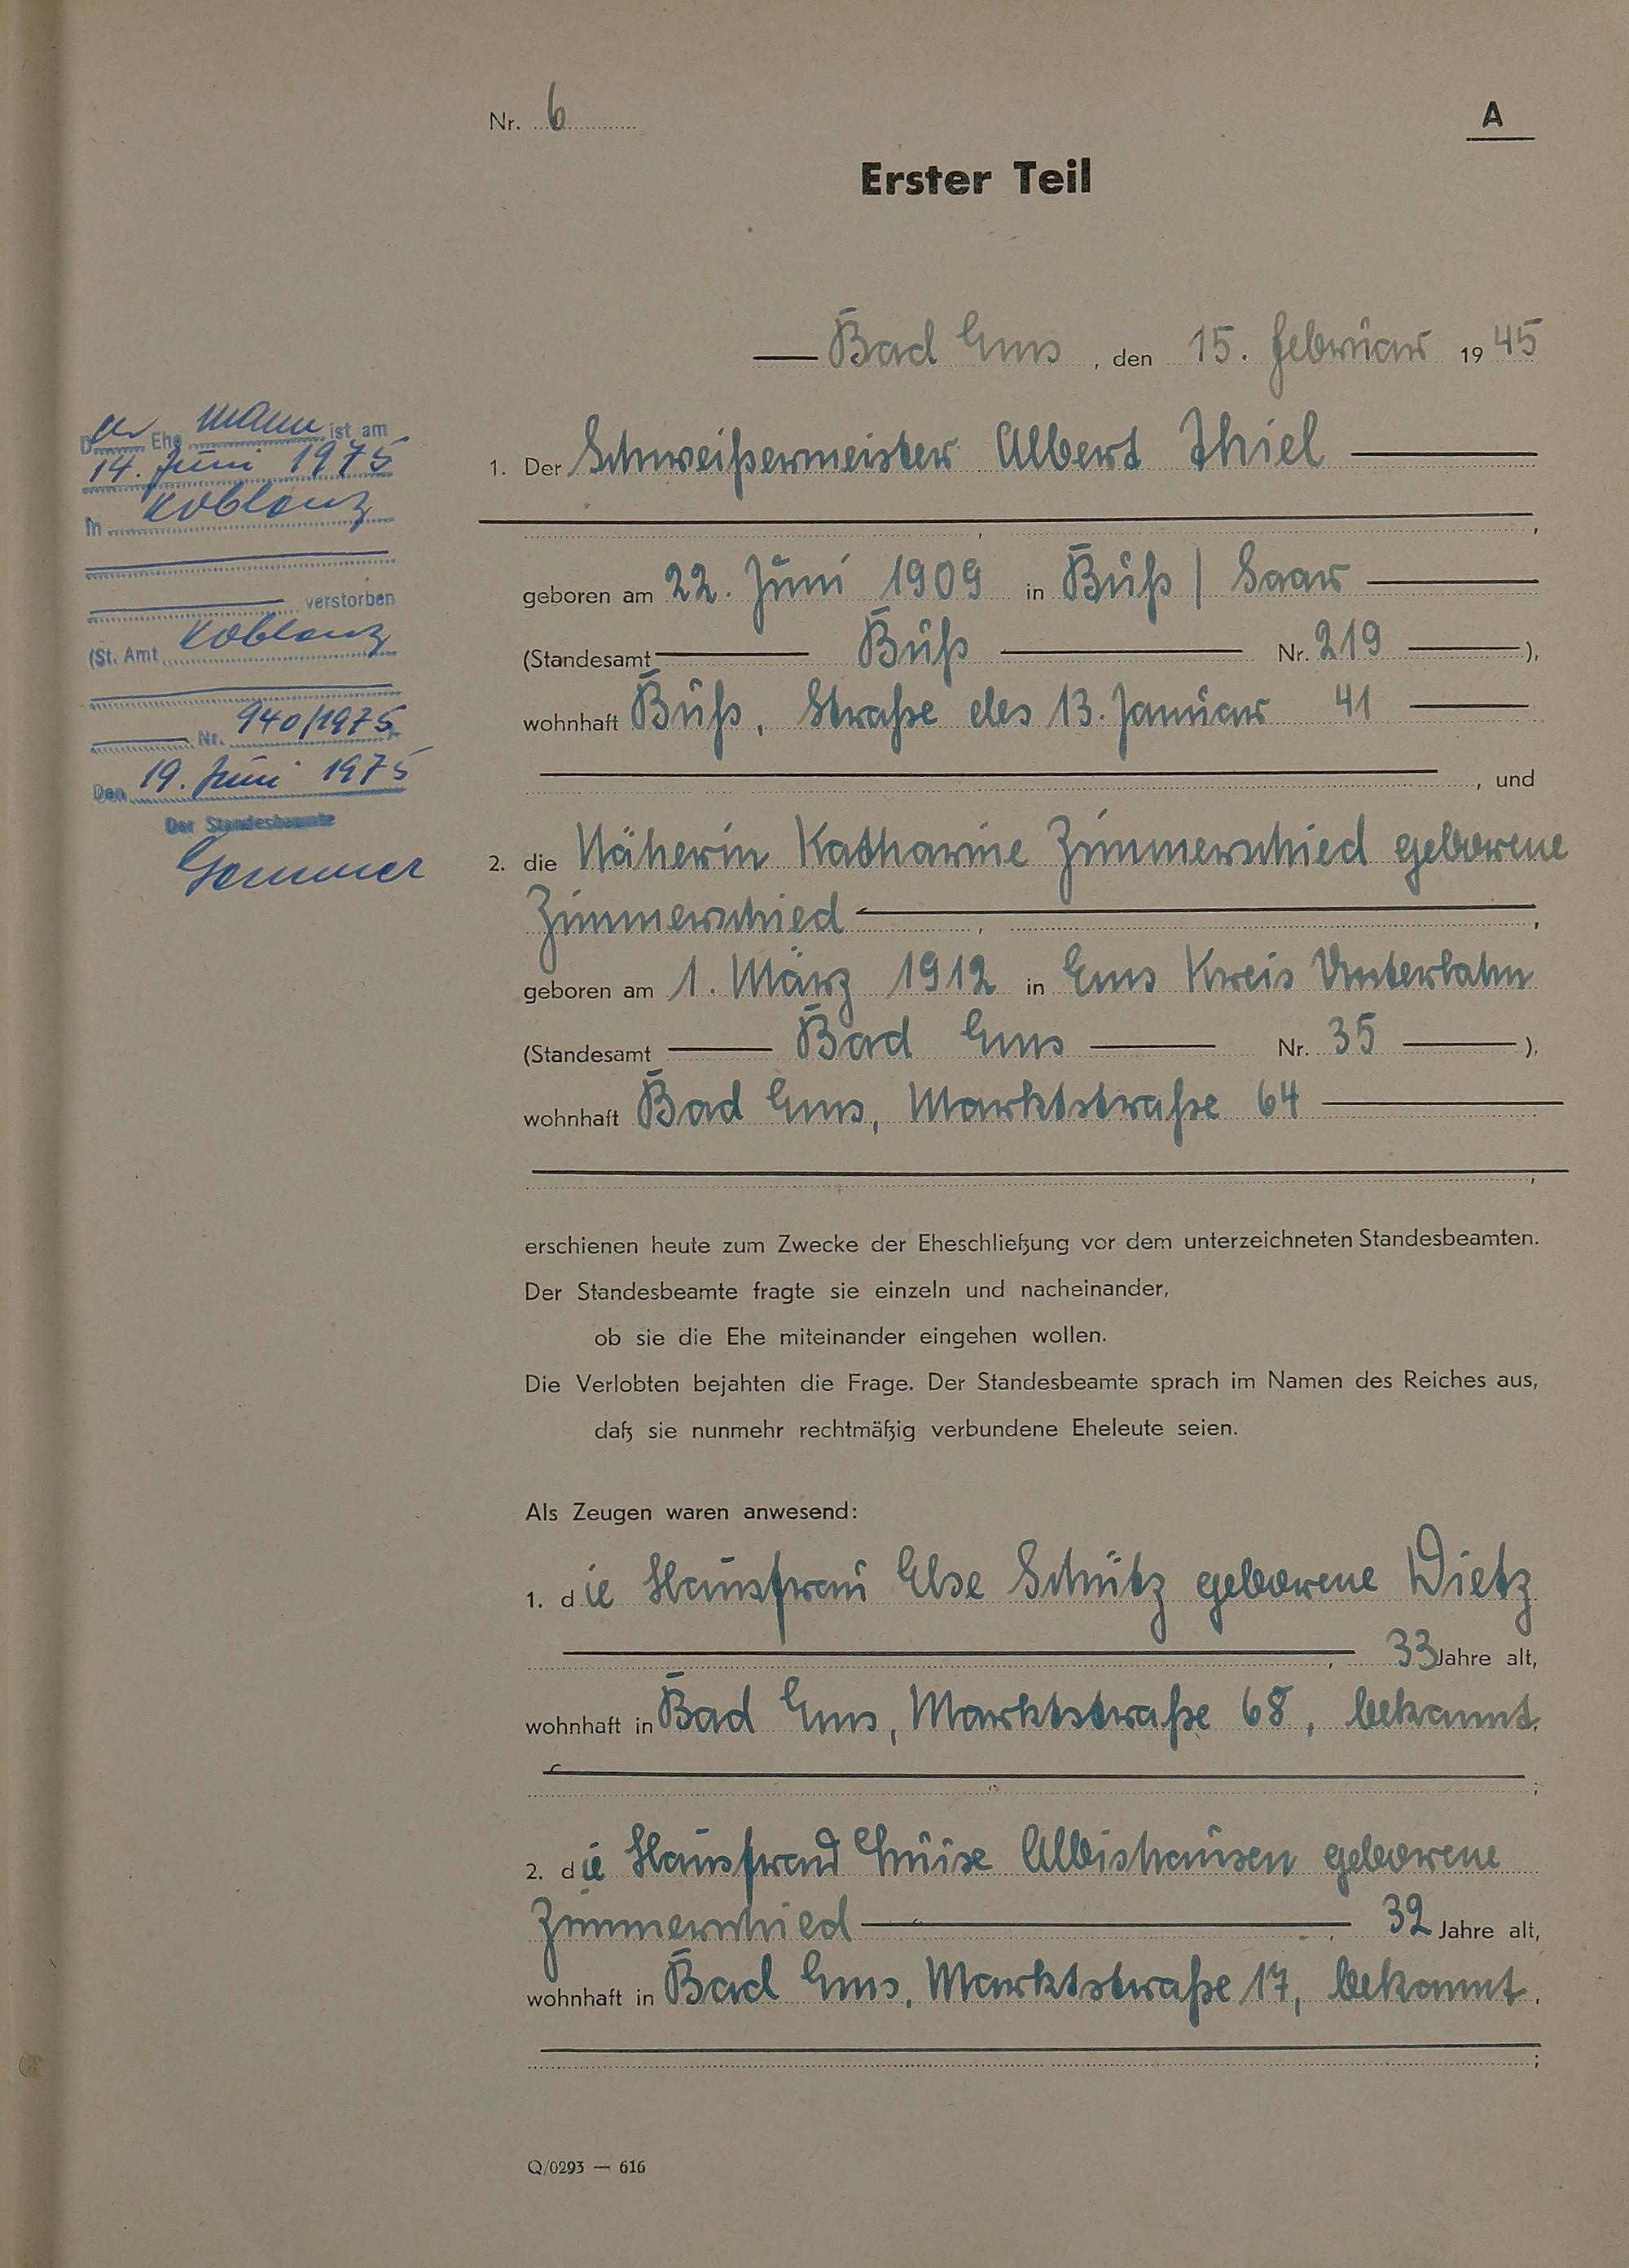 Nr. 6
A
Erster Teil
Bad Ems, den 15. Februar 1945
Der Ehemann ist am
14. Juni 1975
in Koblenz
verstorben
(St. Amt Koblenz
Nr. 940/1975
Den 19. Juni 1975
Der Standesbeamte
1. Der Schweißermeister Albert Thiel
,
geboren am 22. Juni 1909 in Buß / Saar
(Standesamt Buß Nr. 219 ),
wohnhaft Buß, Straße des 13. Januar 41
, und
2. die Näherin Katharine Zimmerschied geborene
Zimmerschied ,
geboren am 1. März 1912 in Ems Kreis Unterlahn
(Standesamt Bad Ems Nr. 35 ),
wohnhaft Bad Ems, Marktstraße 64
,
erschienen heute zum Zwecke der Eheschließung vor dem unterzeichneten Standesbeamten.
Der Standesbeamte fragte sie einzeln und nacheinander,
ob sie die Ehe miteinander eingehen wollen.
Die Verlobten bejahten die Frage. Der Standesbeamte sprach im Namen des Reiches aus,
daß sie nunmehr rechtmäßig verbundene Eheleute seien.
Als Zeugen waren anwesend:
1. die Hausfrau Else Schütz geborene Dietz
, 33 Jahre alt,
wohnhaft in Bad Ems, Marktstraße 68, bekannt.
;
2. die Hausfrau Luise Albishausen geborene
Zimmerschied , 32 Jahre alt,
wohnhaft in Bad Ems, Marktstraße 17, bekannt.
;
Q/0293 — 616